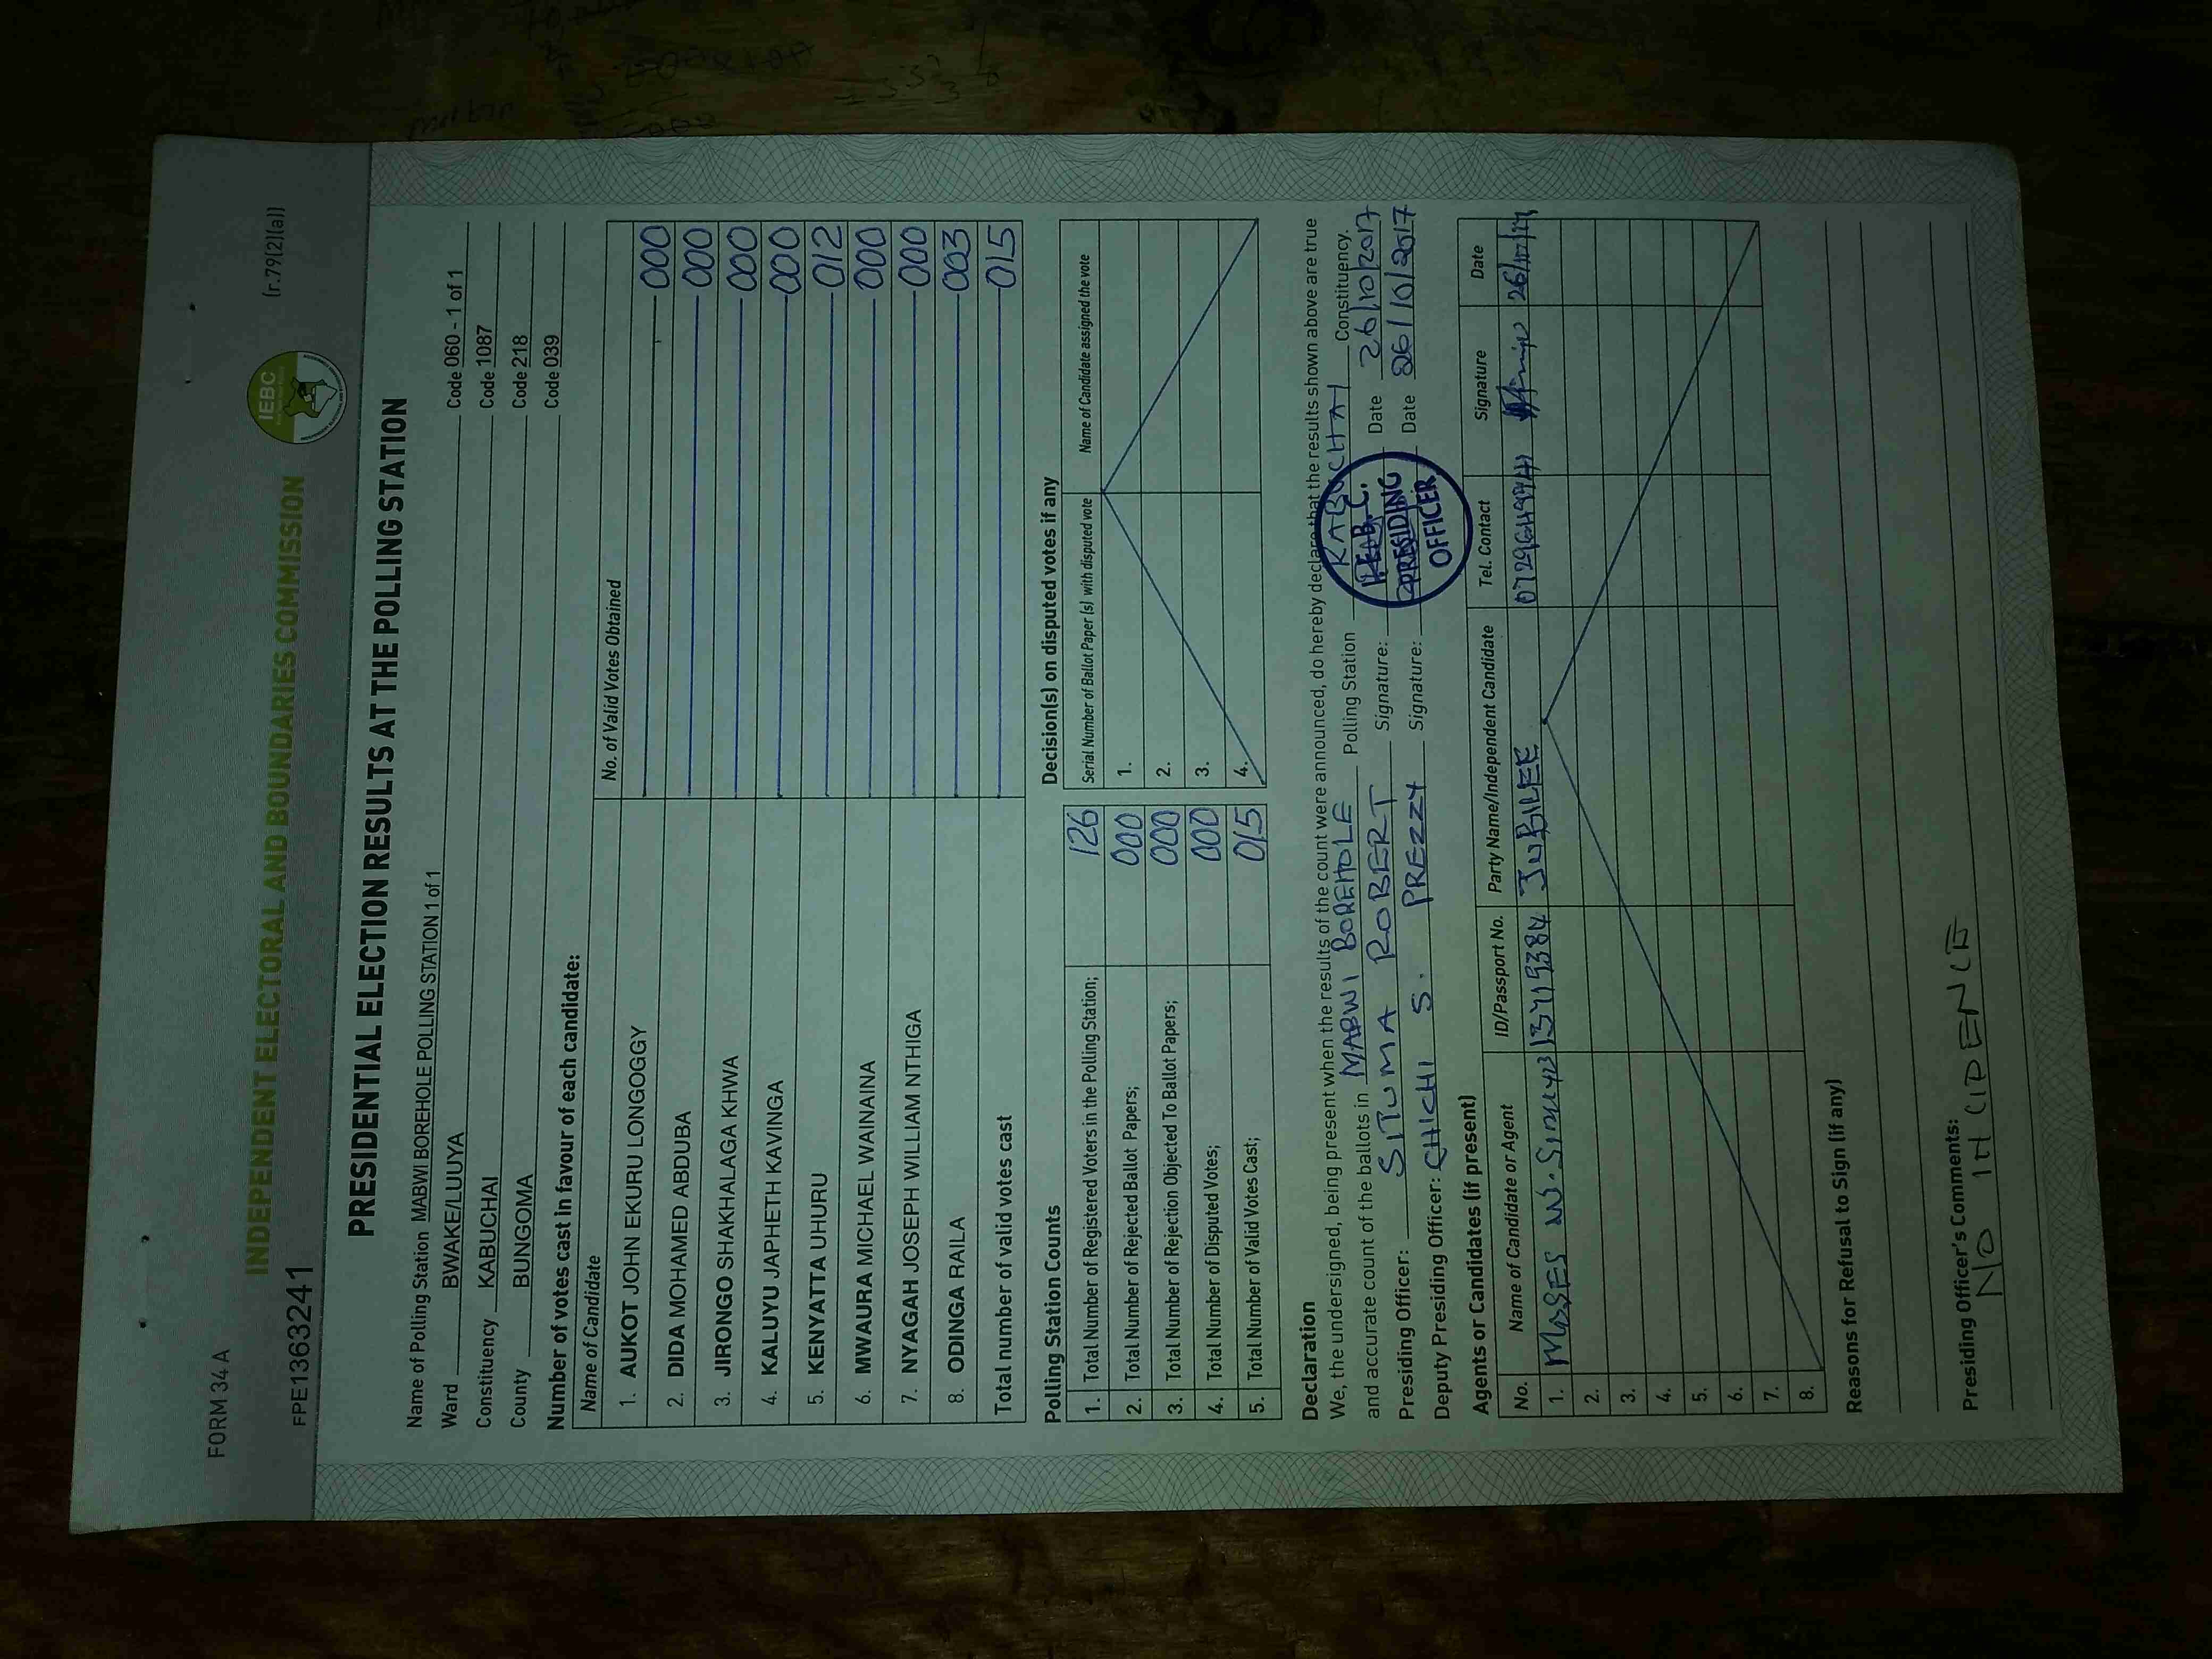 FORM 34 A
(r.79(2)(a))
IEBC
INDEPENDENT ELECTORAL AND BOUNDARIES COMMISSION
FPE1363241
PRESIDENTIAL ELECTION RESULTS AT THE POLLING STATION
Name of Polling Station MABWI BOREHOLE POLLING STATION 1 of 1 Code 060 - 1 of 1
Ward BWAKE/LUUYA Code 1087
Constituency KABUCHAI Code 218
County BUNGOMA Code 039
Number of votes cast in favour of each candidate:
Name of Candidate No. of Valid Votes Obtained
1. AUKOT JOHN EKURU LONGOGGY 000
2. DIDA MOHAMED ABDUBA 000
3. JIRONGO SHAKHALAGA KHWA 000
4. KALUYU JAPHETH KAVINGA 000
5. KENYATTA UHURU 012
6. MWAURA MICHAEL WAINAINA 000
7. NYAGAH JOSEPH WILLIAM NTHIGA 000
8. ODINGA RAILA 003
Total number of valid votes cast 015
Polling Station Counts
1. Total Number of Registered Voters in the Polling Station; 126
2. Total Number of Rejected Ballot Papers; 000
3. Total Number of Rejection Objected To Ballot Papers; 000
4. Total Number of Disputed Votes; 000
5. Total Number of Valid Votes Cast; 015
Decision(s) on disputed votes if any
Serial Number of Ballot Paper (s) with disputed vote Name of Candidate assigned the vote
1.
2.
3.
4.
Declaration
We, the undersigned, being present when the results of the count were announced, do hereby declare that the results shown above are true
and accurate count of the ballots in MABWI BOREHOLE Polling Station KABUCHAI Constituency.
Presiding Officer: SITUMA ROBERT Signature: Date 26/10/2017
Deputy Presiding Officer: CHICHI S. PREZZY Signature: Date 26/10/2017
PRESIDING
OFFICER
Agents or Candidates (if present)
No. Name of Candidate or Agent ID/Passport No. Party Name/Independent Candidate Tel. Contact Signature Date
1. MOSES W. 13719384 JUBILEE
2.
3.
4.
5.
6.
7.
8.
Reasons for Refusal to Sign (if any)
Presiding Officer's Comments:
NO INCIDENCE